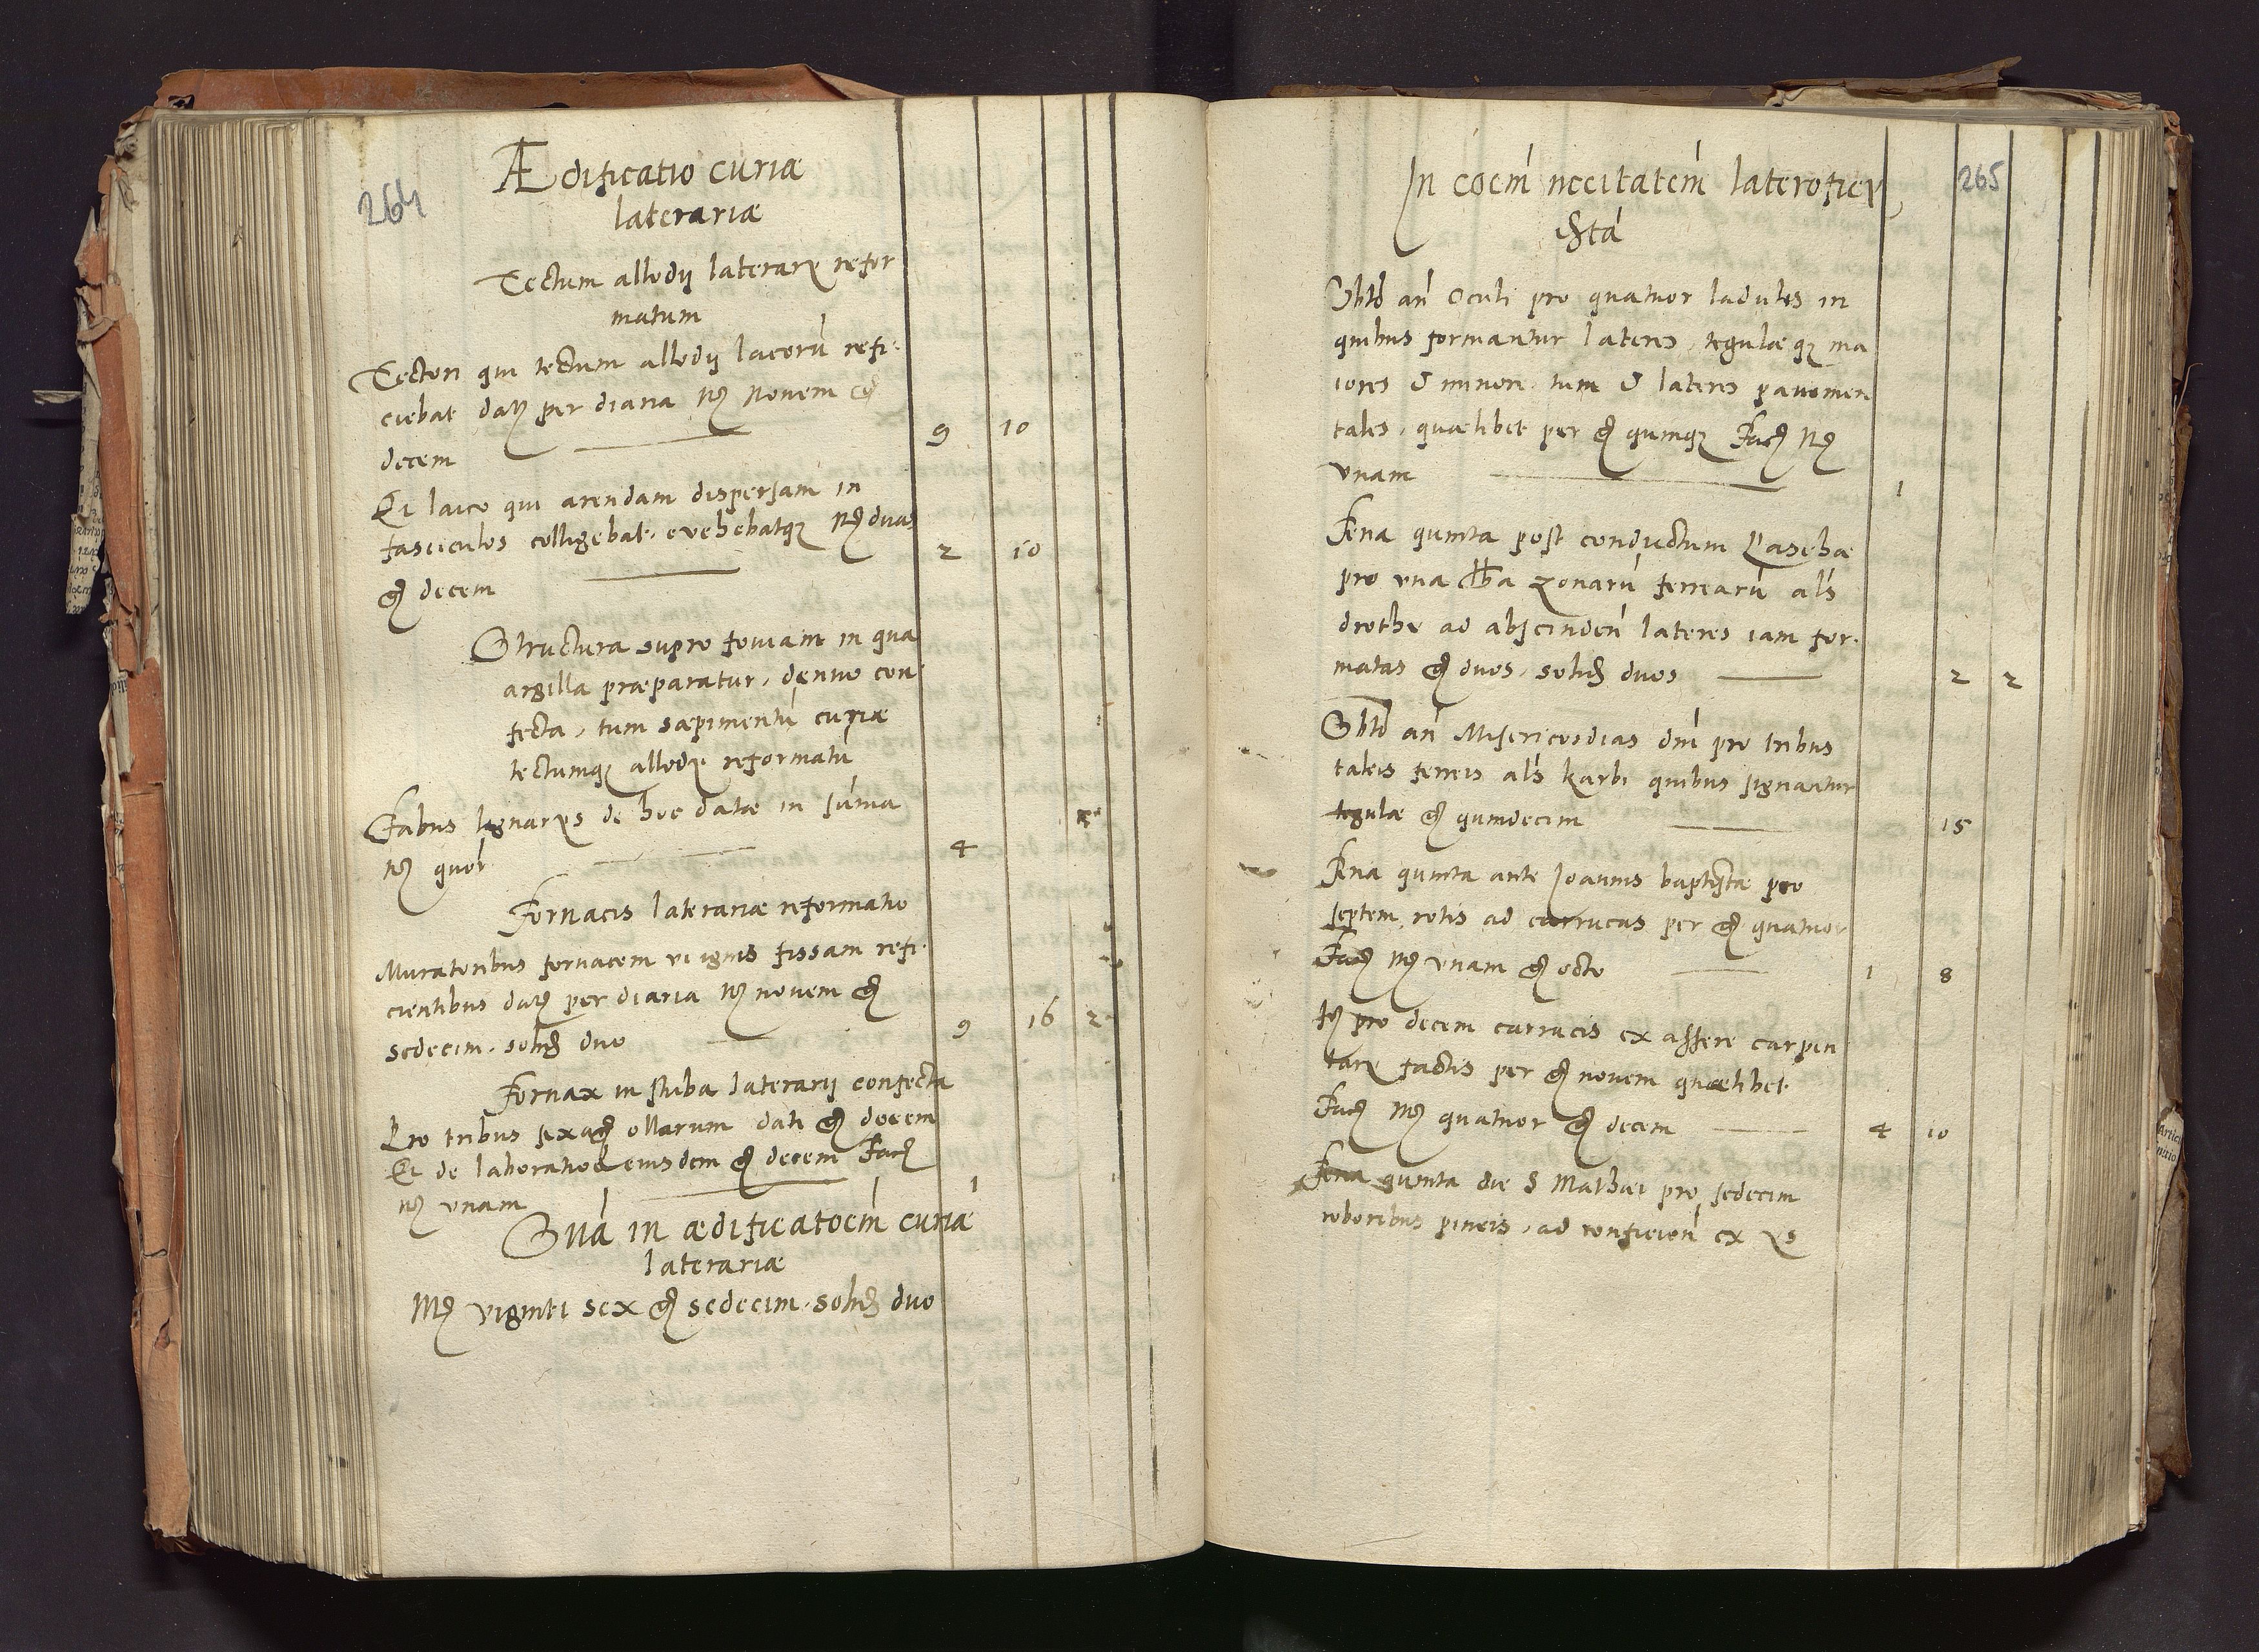 264
Ædificatio curiæ
laterariæ
Tectum allodij laterarij refor
matum
Tectori qui tectum allodij laterarij refi-
ciebat datę per diaria mȝ novem gȝ
decem 9 10
Et laico qui arendam dispersam in
fasciculos colligebat, evehebatqȝ mȝ duas
gȝ decem 2 10
Structura supro foueam in qua
argilla præparatur, denuo con
fecta, tum sæpimentū curiæ
tectumqȝ allodij reformatū
Fabris lignarijs de hoc datæ in sūma
mȝ quor 4
Fornacis laterariæ reformatio
Muratoribus fornacem vi ignis fissam refi-
cientibus datȝ per diaria mȝ novem gȝ
sedecim, solidȝ duo 9 16 2
Fornax in stuba laterarij confecta
Pro tribus sexagȝ ollarum dati gȝ decem
Et de laboratioē eiusdem gȝ decem Facȝ
mȝ vnam 1
Sūa in ædificatoēm curiæ
laterariæ
Mȝ viginti sex gȝ sedecim, solidȝ duo
265
In coēm necitatēm laterificij
Sbtō añ Oculi pro quatuor ladulis in
quibus formantur lateres, tegulæqȝ ma
iores & minores tum & lateres pauimen
tales, quælibet per gȝ quinqȝ Facȝ mȝ
vnam 1
Feria quinta post conductum Paschæ
pro vna zonarū ferrearū als
drothy ad abscinden̄ lateres iam for-
matas gȝ duos, solidȝ duos 2 2
Sbtō añ Misericordias dnī pro tribus
taleis ferreis als karbi quibus signantur
tegulæ gȝ quindecim 15
Feria quinta ante Joannis baptistæ pro
septem rotis ad carrucas per gȝ quatuor
Facȝ mȝ vnam gȝ octo 1 8
Itȝ pro decem carrucis ex assere carpin
tarij factis per gȝ novem quælibet
Facȝ mȝ quatuor gȝ decem 4 10
Feria quinta die S Mathæi pro sedecim
roboribus pineis, ad conficien̄ ex ijs